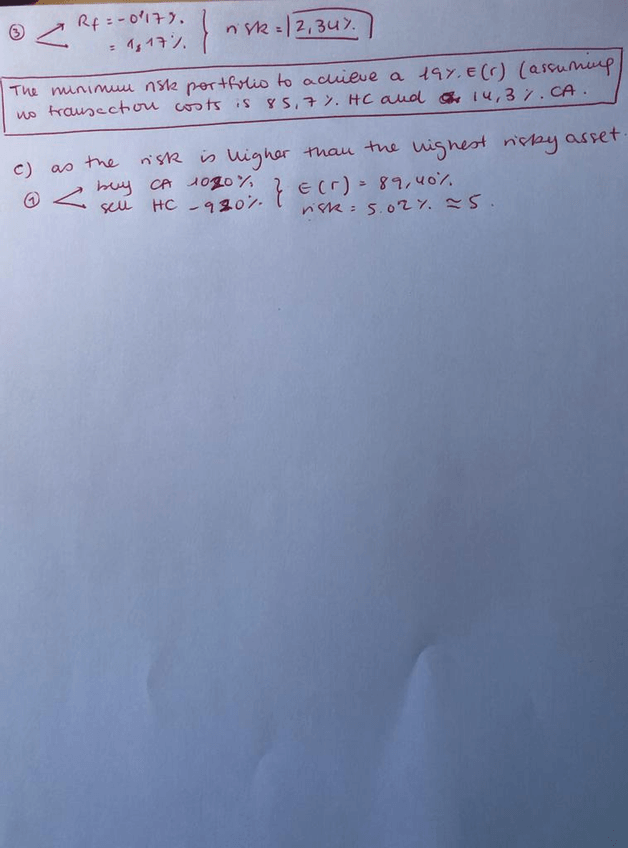 ③ Rf = -0'17%.
= 1,17%. } risk = 2,34%.
The minimum risk portfolio to achieve a 19%. E(r) (assuming
no transaction costs is 85,7%. HC and 14,3%. CA.
c) as the risk is higher than the highest risky asset.
① buy CA 1020% } E(r) = 89,40%.
sell HC -920%. risk = 5.02%. ≈ 5.